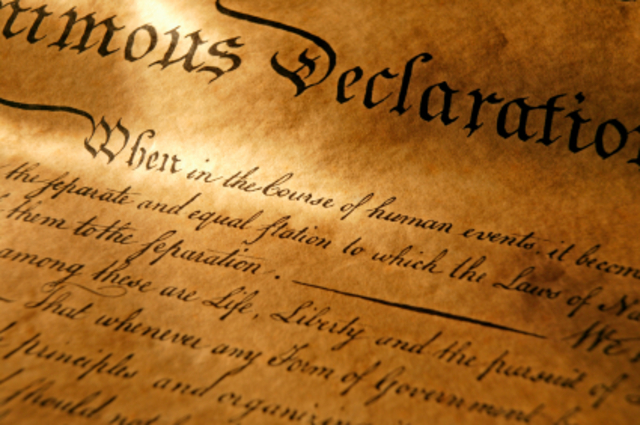 nimous Declaratio
When in the Course of human events, it becom
the separate and equal station to which the Laws of Na
them to the separation. We
among these are Life, Liberty and the pursuit of
— That whenever any Form of Government
principles and organizin
should not